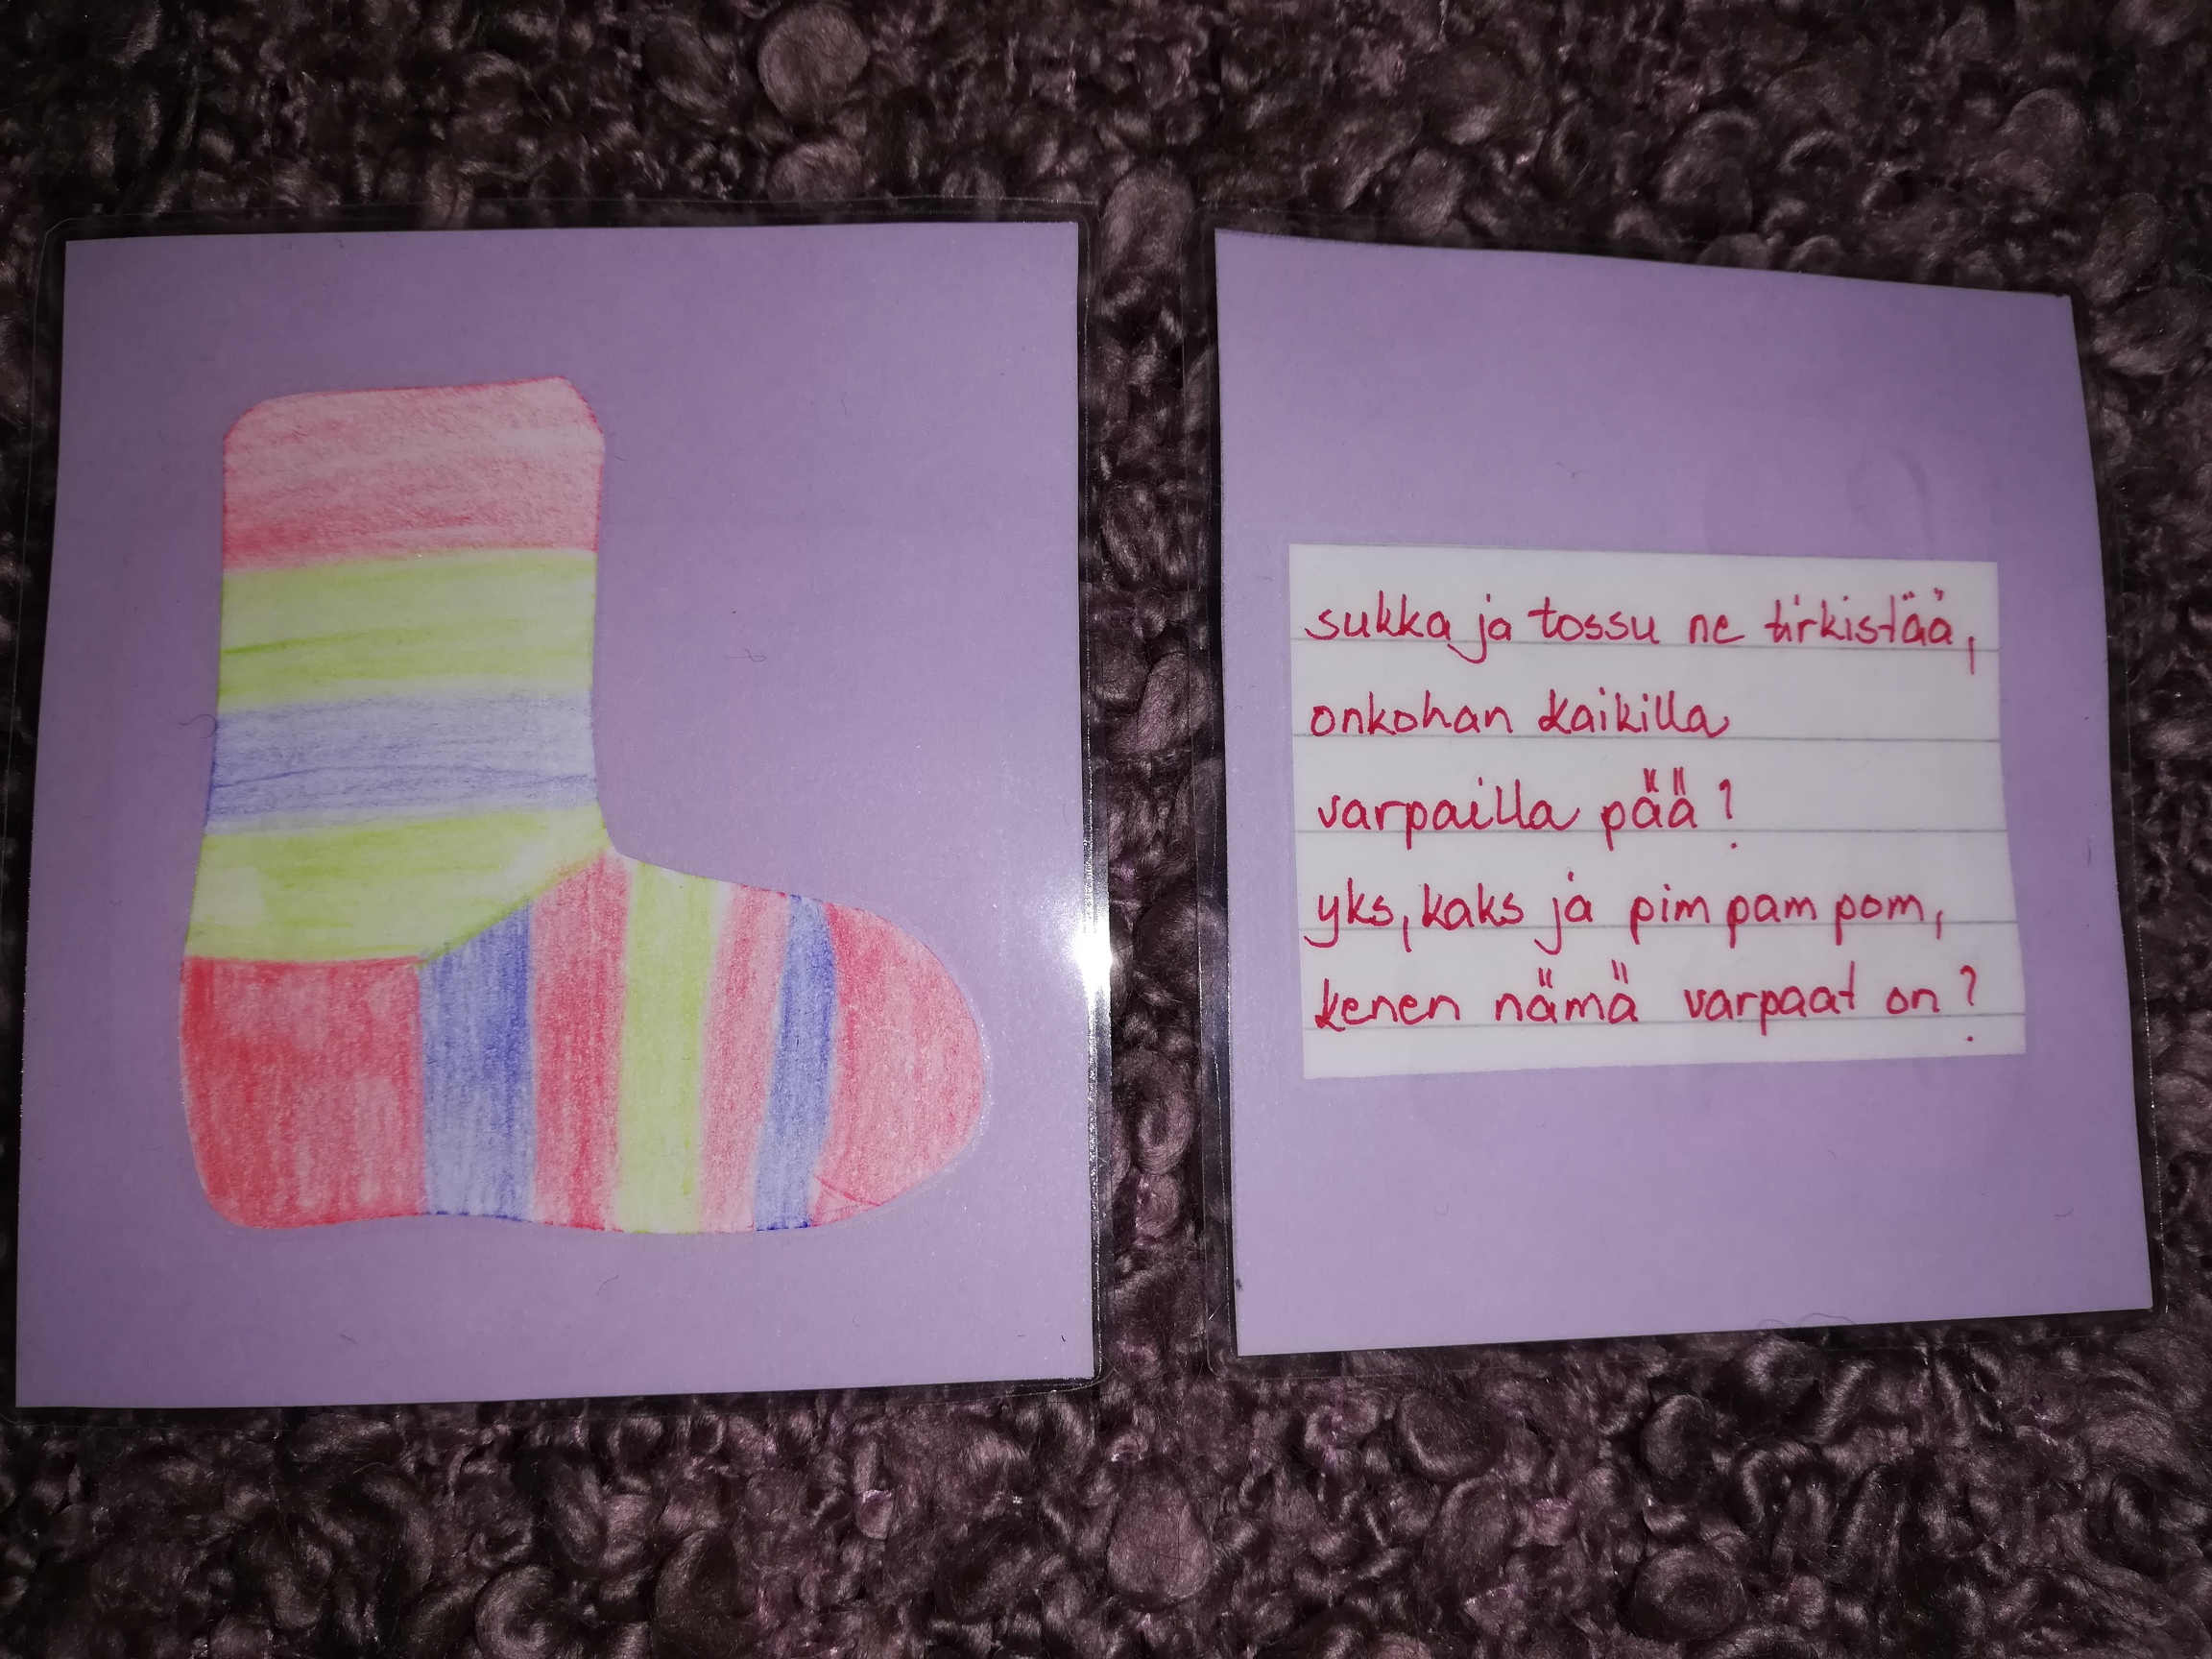 sukka ja tossu ne tirkistää,
onkohan kaikilla
varpailla pää?
yks, kaks ja pim pam pom,
kenen nämä varpaat on?